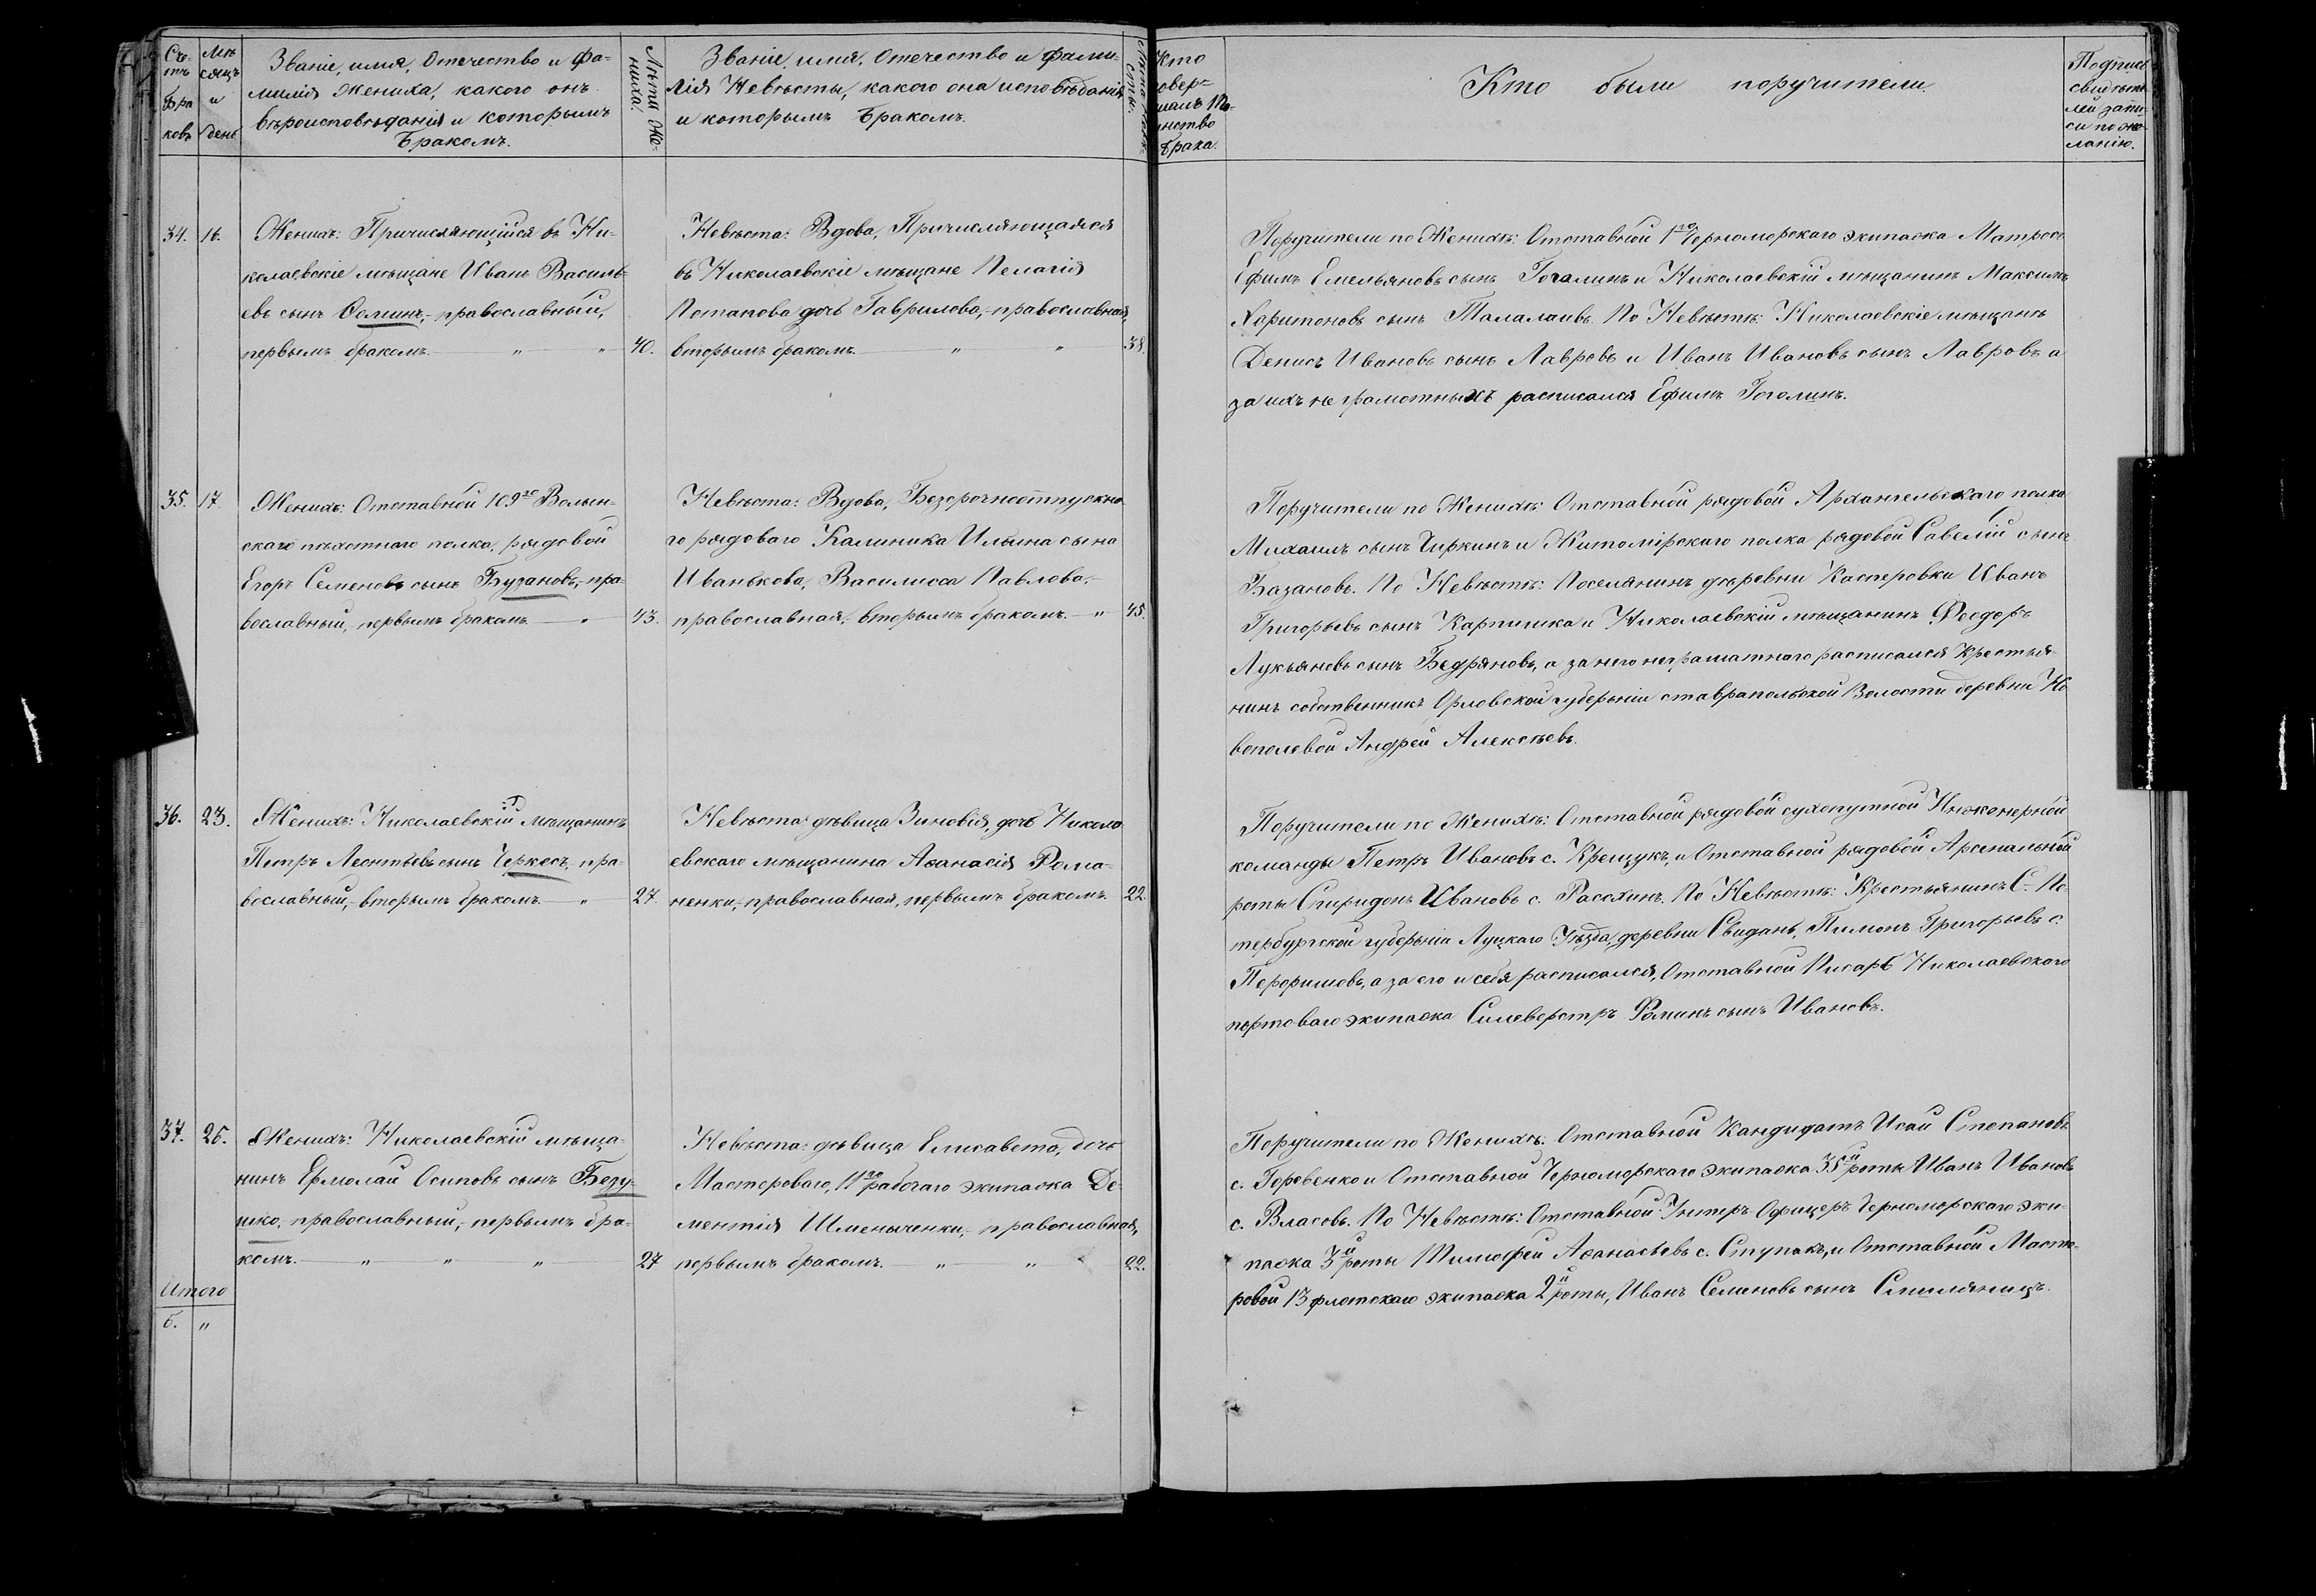 Счетъ Браковъ
Мѣсяцъ и день
Званіе, имя, Отечество и фа-
милія жениха, какого онъ
вѣроисповѣданія и которымъ
Бракомъ.
Лѣта Же-
ниха.
Званіе, имя, Отечество и фами-
лія Невѣсты, какого она исповѣданія
и которымъ Бракомъ.
Кто
совер-
шалъ Та-
инство
брака.
Кто были поручители.
Подпись
свидѣте-
лей запи-
си по же-
ланію.
34. 16.
Женихъ: Причисляющійся въ Ни-
колаевскіе мѣщане Иванъ Василь-
евъ сынъ Ѳоминъ, православный,
первымъ бракомъ. — „ — „ 40.
Невѣста: Вдова, Причисляющаяся
въ Николаевскіе мѣщане Пелагія
Потапова дочь Гаврилова, православная,
вторымъ бракомъ. — „ — „ 38.
Поручители по Женихѣ: Отставной 1го Черноморскаго экипажа Матросъ
Ефимъ Емельяновъ сынъ Гоголинъ и Николаевскій мѣщанинъ Максимъ
Харитоновъ сынъ Талалаивъ. По Невѣстѣ: Николаевскіе мѣщане
Денисъ Ивановъ сынъ Лавровъ и Иванъ Ивановъ сынъ Лавровъ а
за ихъ не грамотныхъ расписался Ефимъ Гоголинъ.
35. 17.
Женихъ: Отставной 109го Волын-
скаго пѣхотнаго полка, рядовой
Егоръ Семеновъ сынъ Бузановъ, пра-
вославный, первымъ бракомъ — „ 43.
Невѣста: Вдова, Безсрочноотпускна-
го рядоваго Калиника Ильина сына
Иванькова, Василисса Павлова,
православная, вторымъ бракомъ. — „ 45.
Поручители по Женихѣ: Отставной рядовой Архангельскаго полка
Михаилъ сынъ Чиркинъ и Житомірскаго полка рядовой Савелій сынъ
Базановъ. По Невѣстѣ: Поселянинъ деревни Касперовки Иванъ
Григорьевъ сынъ Карпишка и Николаевскій мѣщанинъ Феодоръ
Лукьяновъ сынъ Бедряновъ, а за него неграматнаго расписался Крестья-
нинъ собственникъ Орловской губерніи ставрапольской Волости деревни Но-
вополевой Андрей Алексѣевъ.
36. 23.
Женихъ: Николаевскій мѣщанинъ
Петръ Леонтьевъ сынъ Черкесъ, пра-
вославный, вторымъ бракомъ — „ 27.
Невѣста: дѣвица Зиновія, дочь Никола-
евскаго мѣщанина Аѳанасія Рома-
ненки, православная, первымъ бракомъ. 22.
Поручители по Женихѣ: Отставной рядовой сухопутной Инженерной
команды Петръ Ивановъ с. Крещукъ, и Отставной рядовой Арсенальной
роты Спиридонъ Ивановъ с. Расохинъ. По Невѣстѣ: Крестьянинъ С. Пе-
тербургской губерніи Луцкаго Уѣзда, деревни Свидань, Пимонъ Григорьевъ с.
а за его и себя расписался, Отставной Писарь Николаевского
портоваго экипажа Силеверстръ Фоминъ сынъ Ивановъ.
37. 25.
Женихъ: Николаевскій мѣща-
нинъ Ермолай Осиповъ сынъ Безу-
шко, православный, первымъ бра-
комъ. — „ — „ — „ 27
Невѣста: дѣвица Елисавета, дочь
Мастероваго, 11го рабочаго экипажа Де-
ментія Шменыченки, православная,
первымъ бракомъ. — „ — „ 22.
Поручители по Женихѣ: Отставной Кандидатъ Исай Степановъ
с. Горовенко и Отставной Черноморскаго экипажа 35й роты Иванъ Ивановъ
с. Власовъ. По Невѣстѣ: Отставной Унтеръ-Офицеръ Черноморскаго эки-
пажа 3й роты Тимофей Аѳанасьевъ с. Ступакъ, и Отставной Масте-
ровой 13 флотскаго экипажа 2й роты, Иванъ Семеновъ сынъ
Итого
6. „